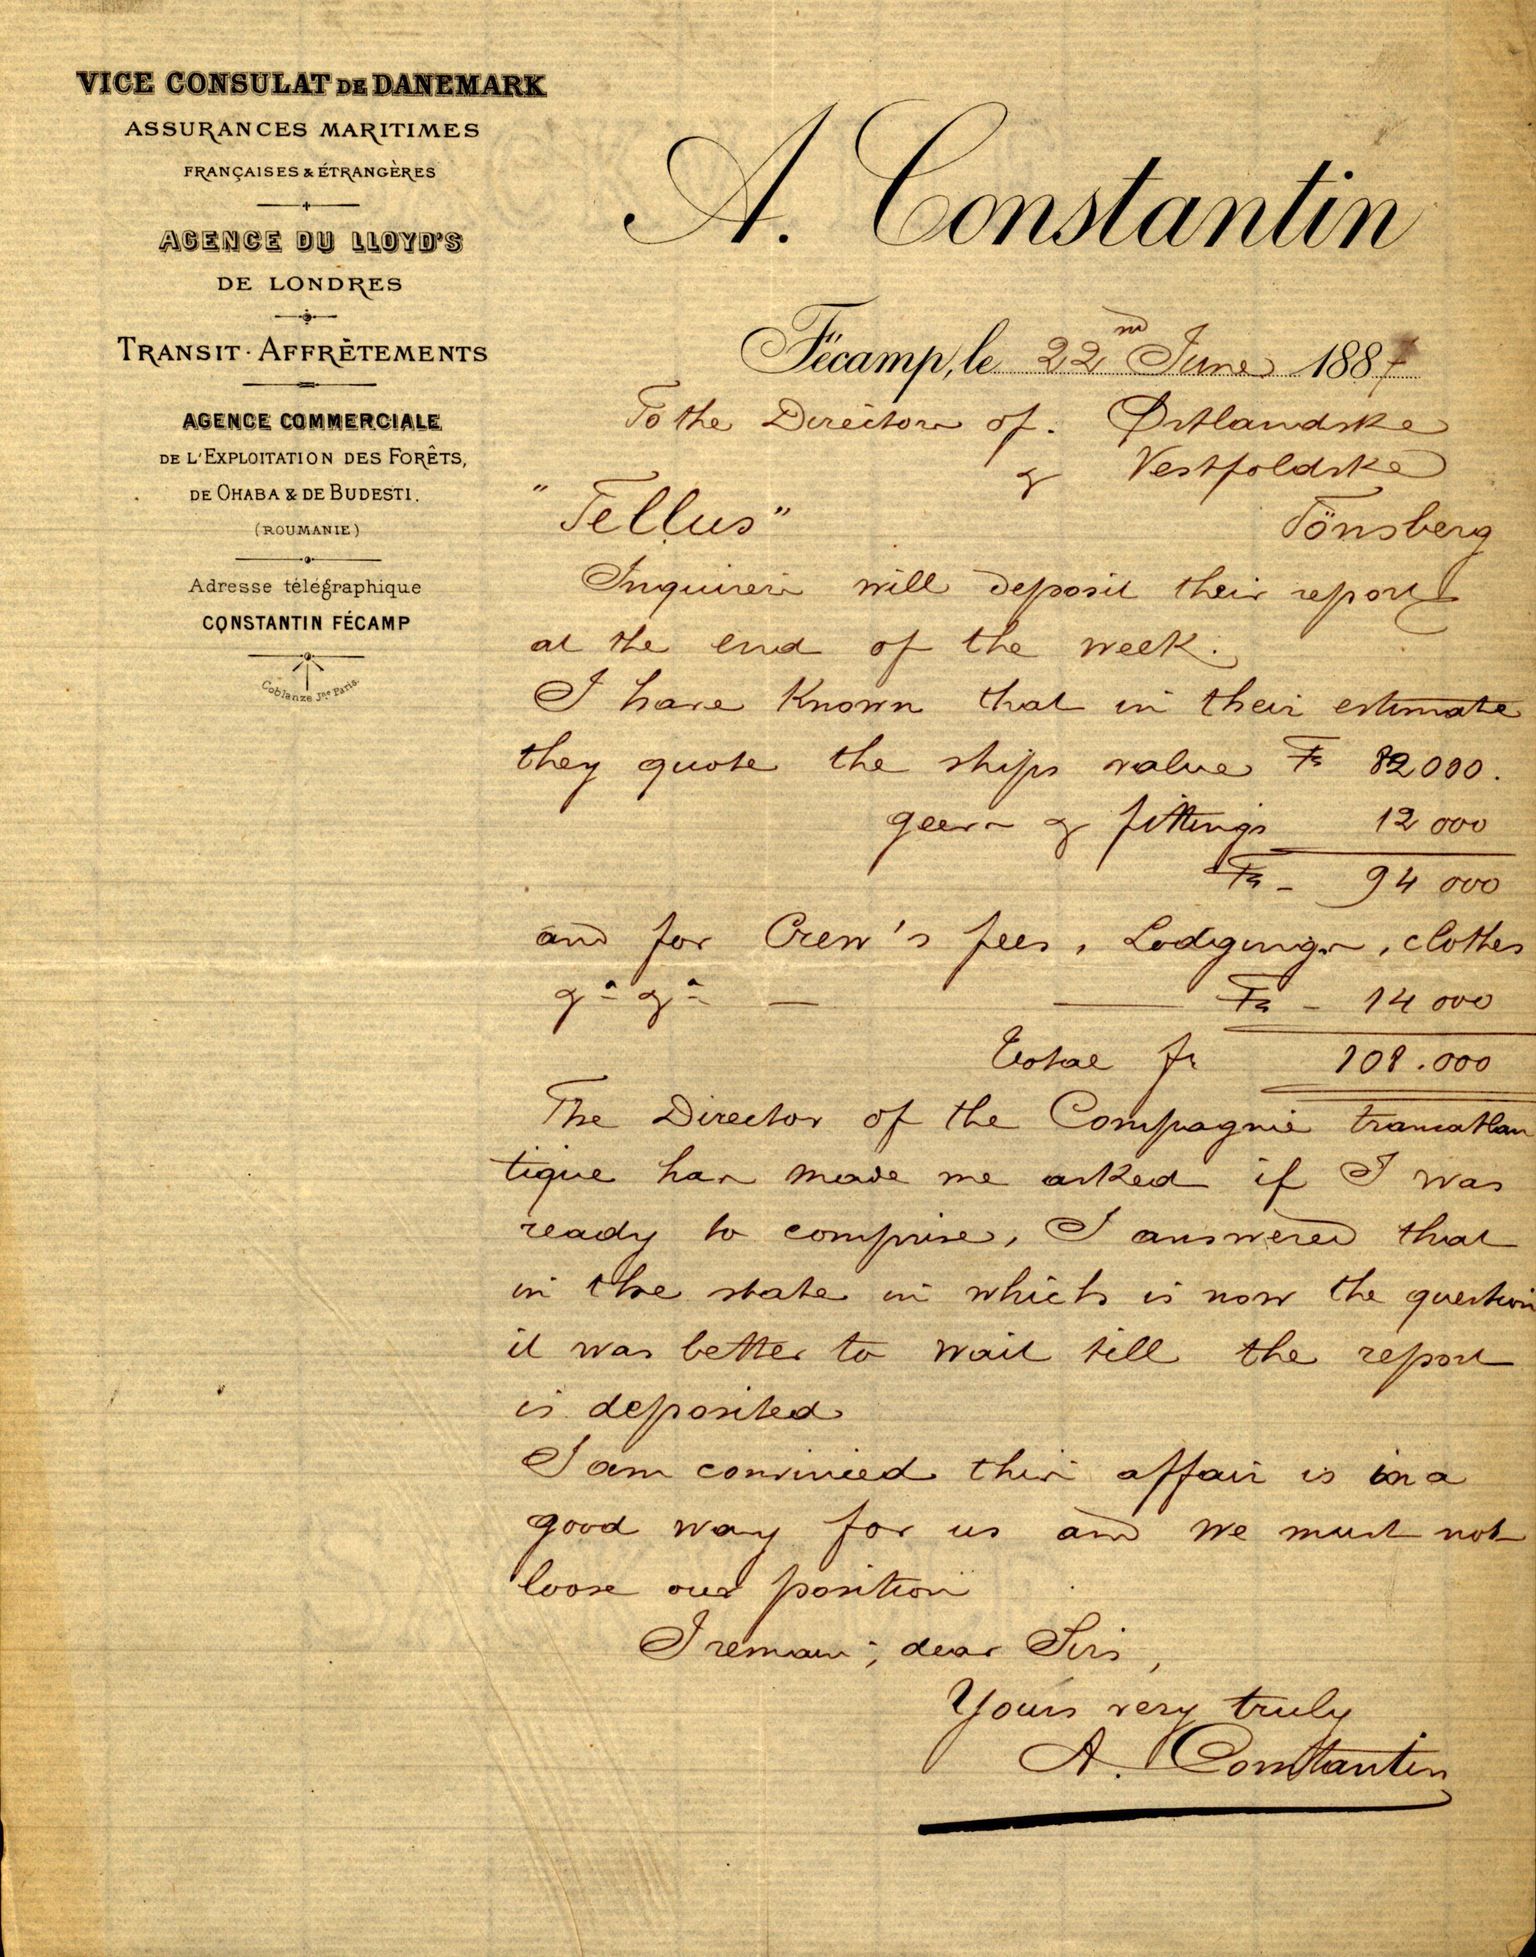 VICE CONSULAT DE DANEMARK
ASSURANCES MARITIMES
FRANÇAISES & ÉTRANGÈRES
AGENCE DU LLOYD'S
DE LONDRES
TRANSIT · AFFRÈTEMENTS
AGENCE COMMERCIALE
DE L'EXPLOITATION DES FORÊTS,
DE OHABA & DE BUDESTI.
(ROUMANIE)
Adresse télégraphique
CONSTANTIN FÉCAMP
Coblanze Jne Paris.
A. Constantin
Fécamp, le 22nd June 1887
To the Directors of. Østlandske
& Vestfoldske
"Tellus" Tönsberg
Inquirers will deposit their report
at the end of the week.
I have Known that in their estimate
they quote the ships value Fs 82000.
geers & fittings 12 000
Frs - 94 000
and for Crew's fees, Lodgings, clothes
&a &a — — Frs - 14 000
Total fr 108.000
The Director of the Compagnie transatlan
tique has made me asked if I was
ready to comprise, I answered that
in the state in which is now the question
it was better to wait till the report
is deposited
I am convinied this affair is in a
good way for us and we must not
loose our position
I remain, dear Sirs,
Yours very truly
A. Constantin